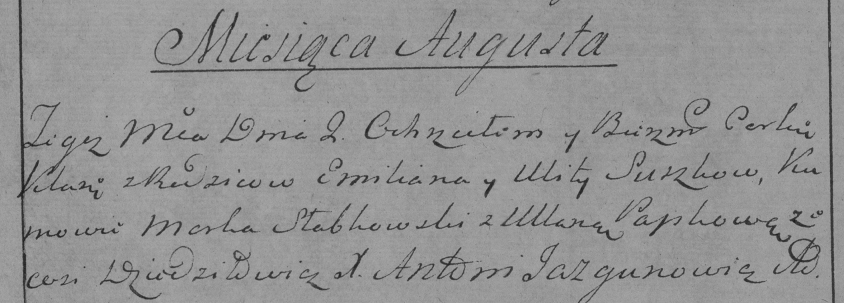 Miesiąca Augusta
Tegoż Mca Dnia 2. Ochrzciłem y Bierzm Corkę
z Rodzicow Emiliana y Ulity Suszkow, Ku
mowie Marka Słabkowski z Ulaną Papkową zo
wsi Dziedziłowicz X. Antoni Jazgunowicz